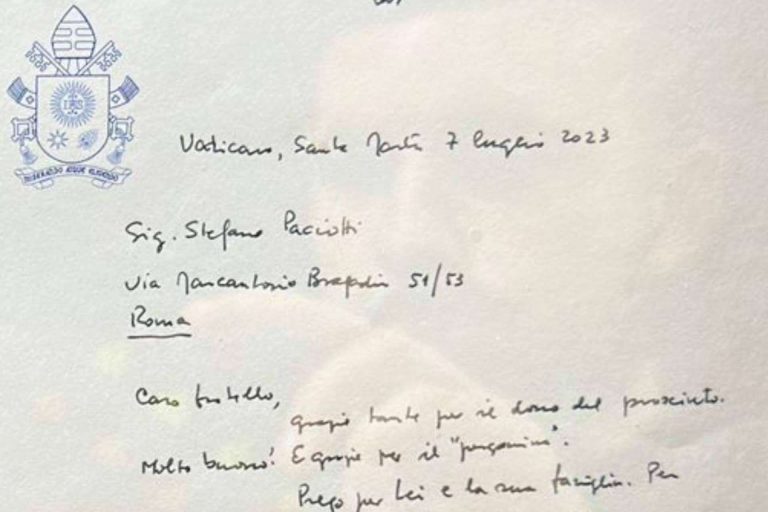 IHS
MISERANDO ATQUE ELIGENDO
Vaticano, Santa Marta 7 luglio 2023
Sig. Stefano Paciotti
via Marcantonio Bragadin 51/53
Roma
Caro fratello,
grazie tante per il dono del prosciutto.
Molto buono! E grazie per il
Prego per Lei e la sua famiglia. Per